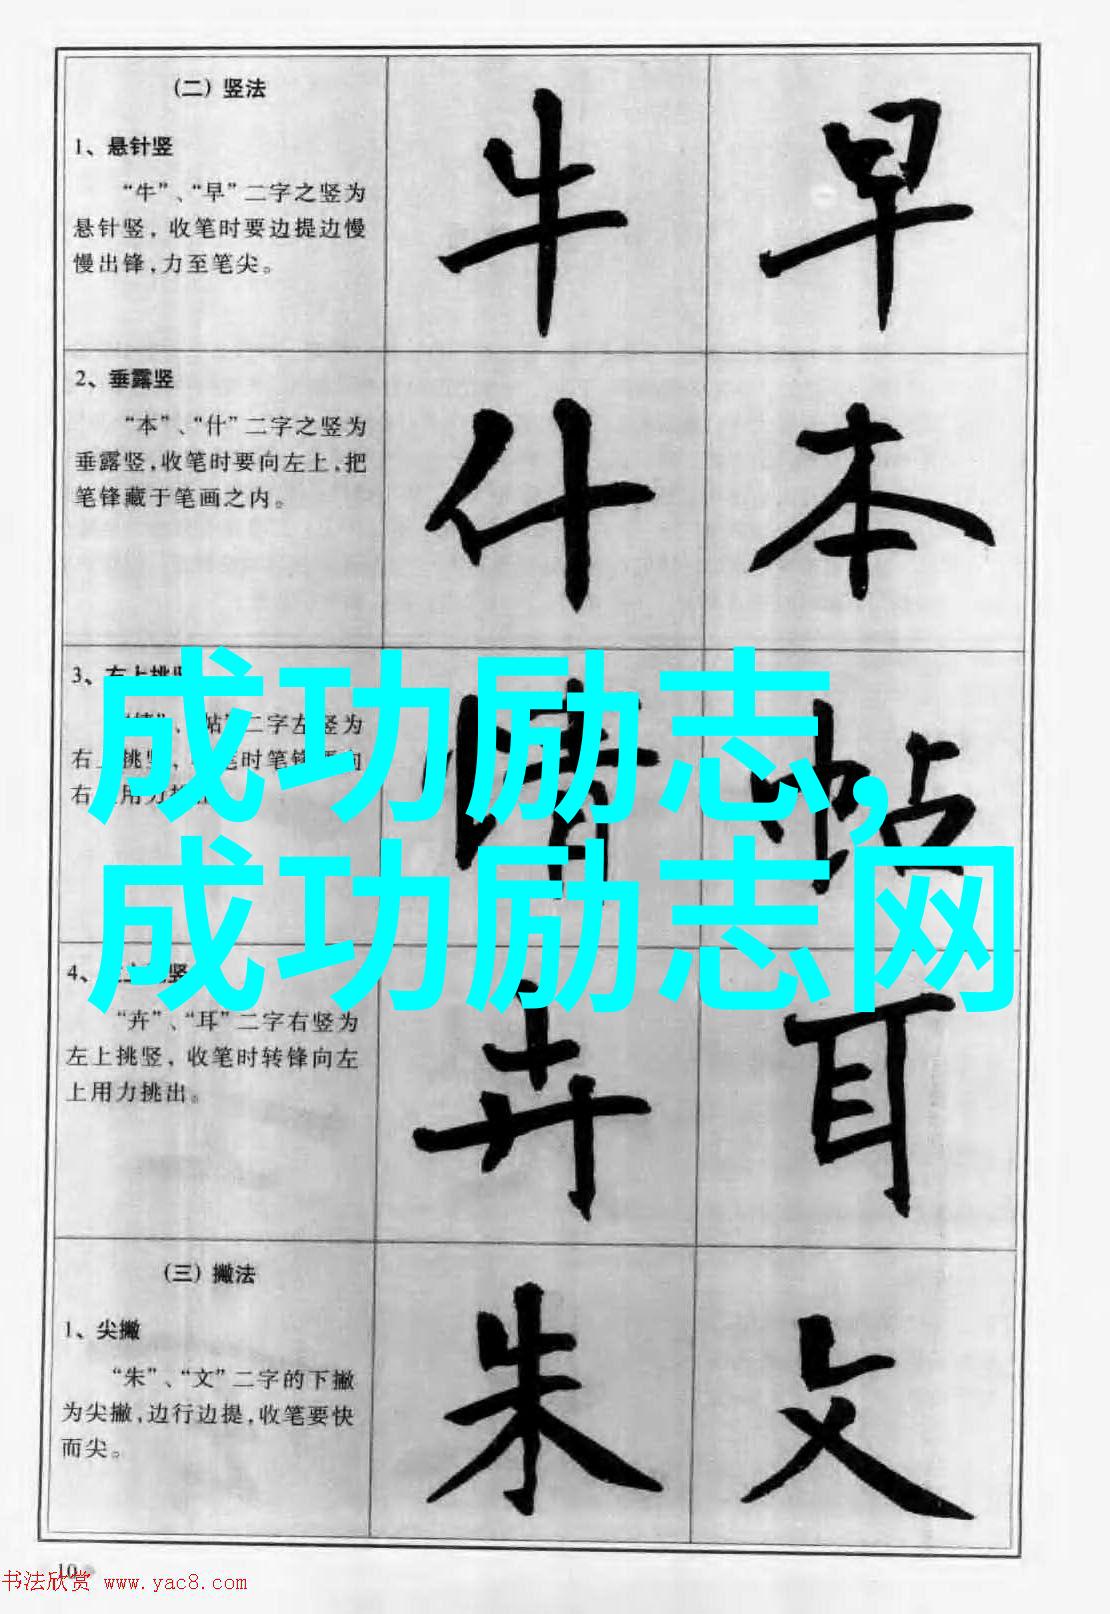 （二）竖法
1、悬针竖
“牛”、“早”二字之竖为
悬针竖，收笔时要边提边慢
慢出锋，力至笔尖。
牛 早
2、垂露竖
“本”、“什”二字之竖为
垂露竖，收笔时要向左上，把
笔锋藏于笔画之内。
什 本
3、右上挑竖
帖 二字左竖为
右上挑竖，笔时笔锋向
右 用力
情 帖
成功励志，
成功励志网
4、竖
“卉”、“耳”二字右竖为
左上挑竖，收笔时转锋向左
上用力挑出。
卉 耳
（三）撇法
1、尖撇
“朱”、“文”二字的下撇
为尖撇，边行边提，收笔要快
而尖。
朱 文
10
书法欣赏 www.yac8.com